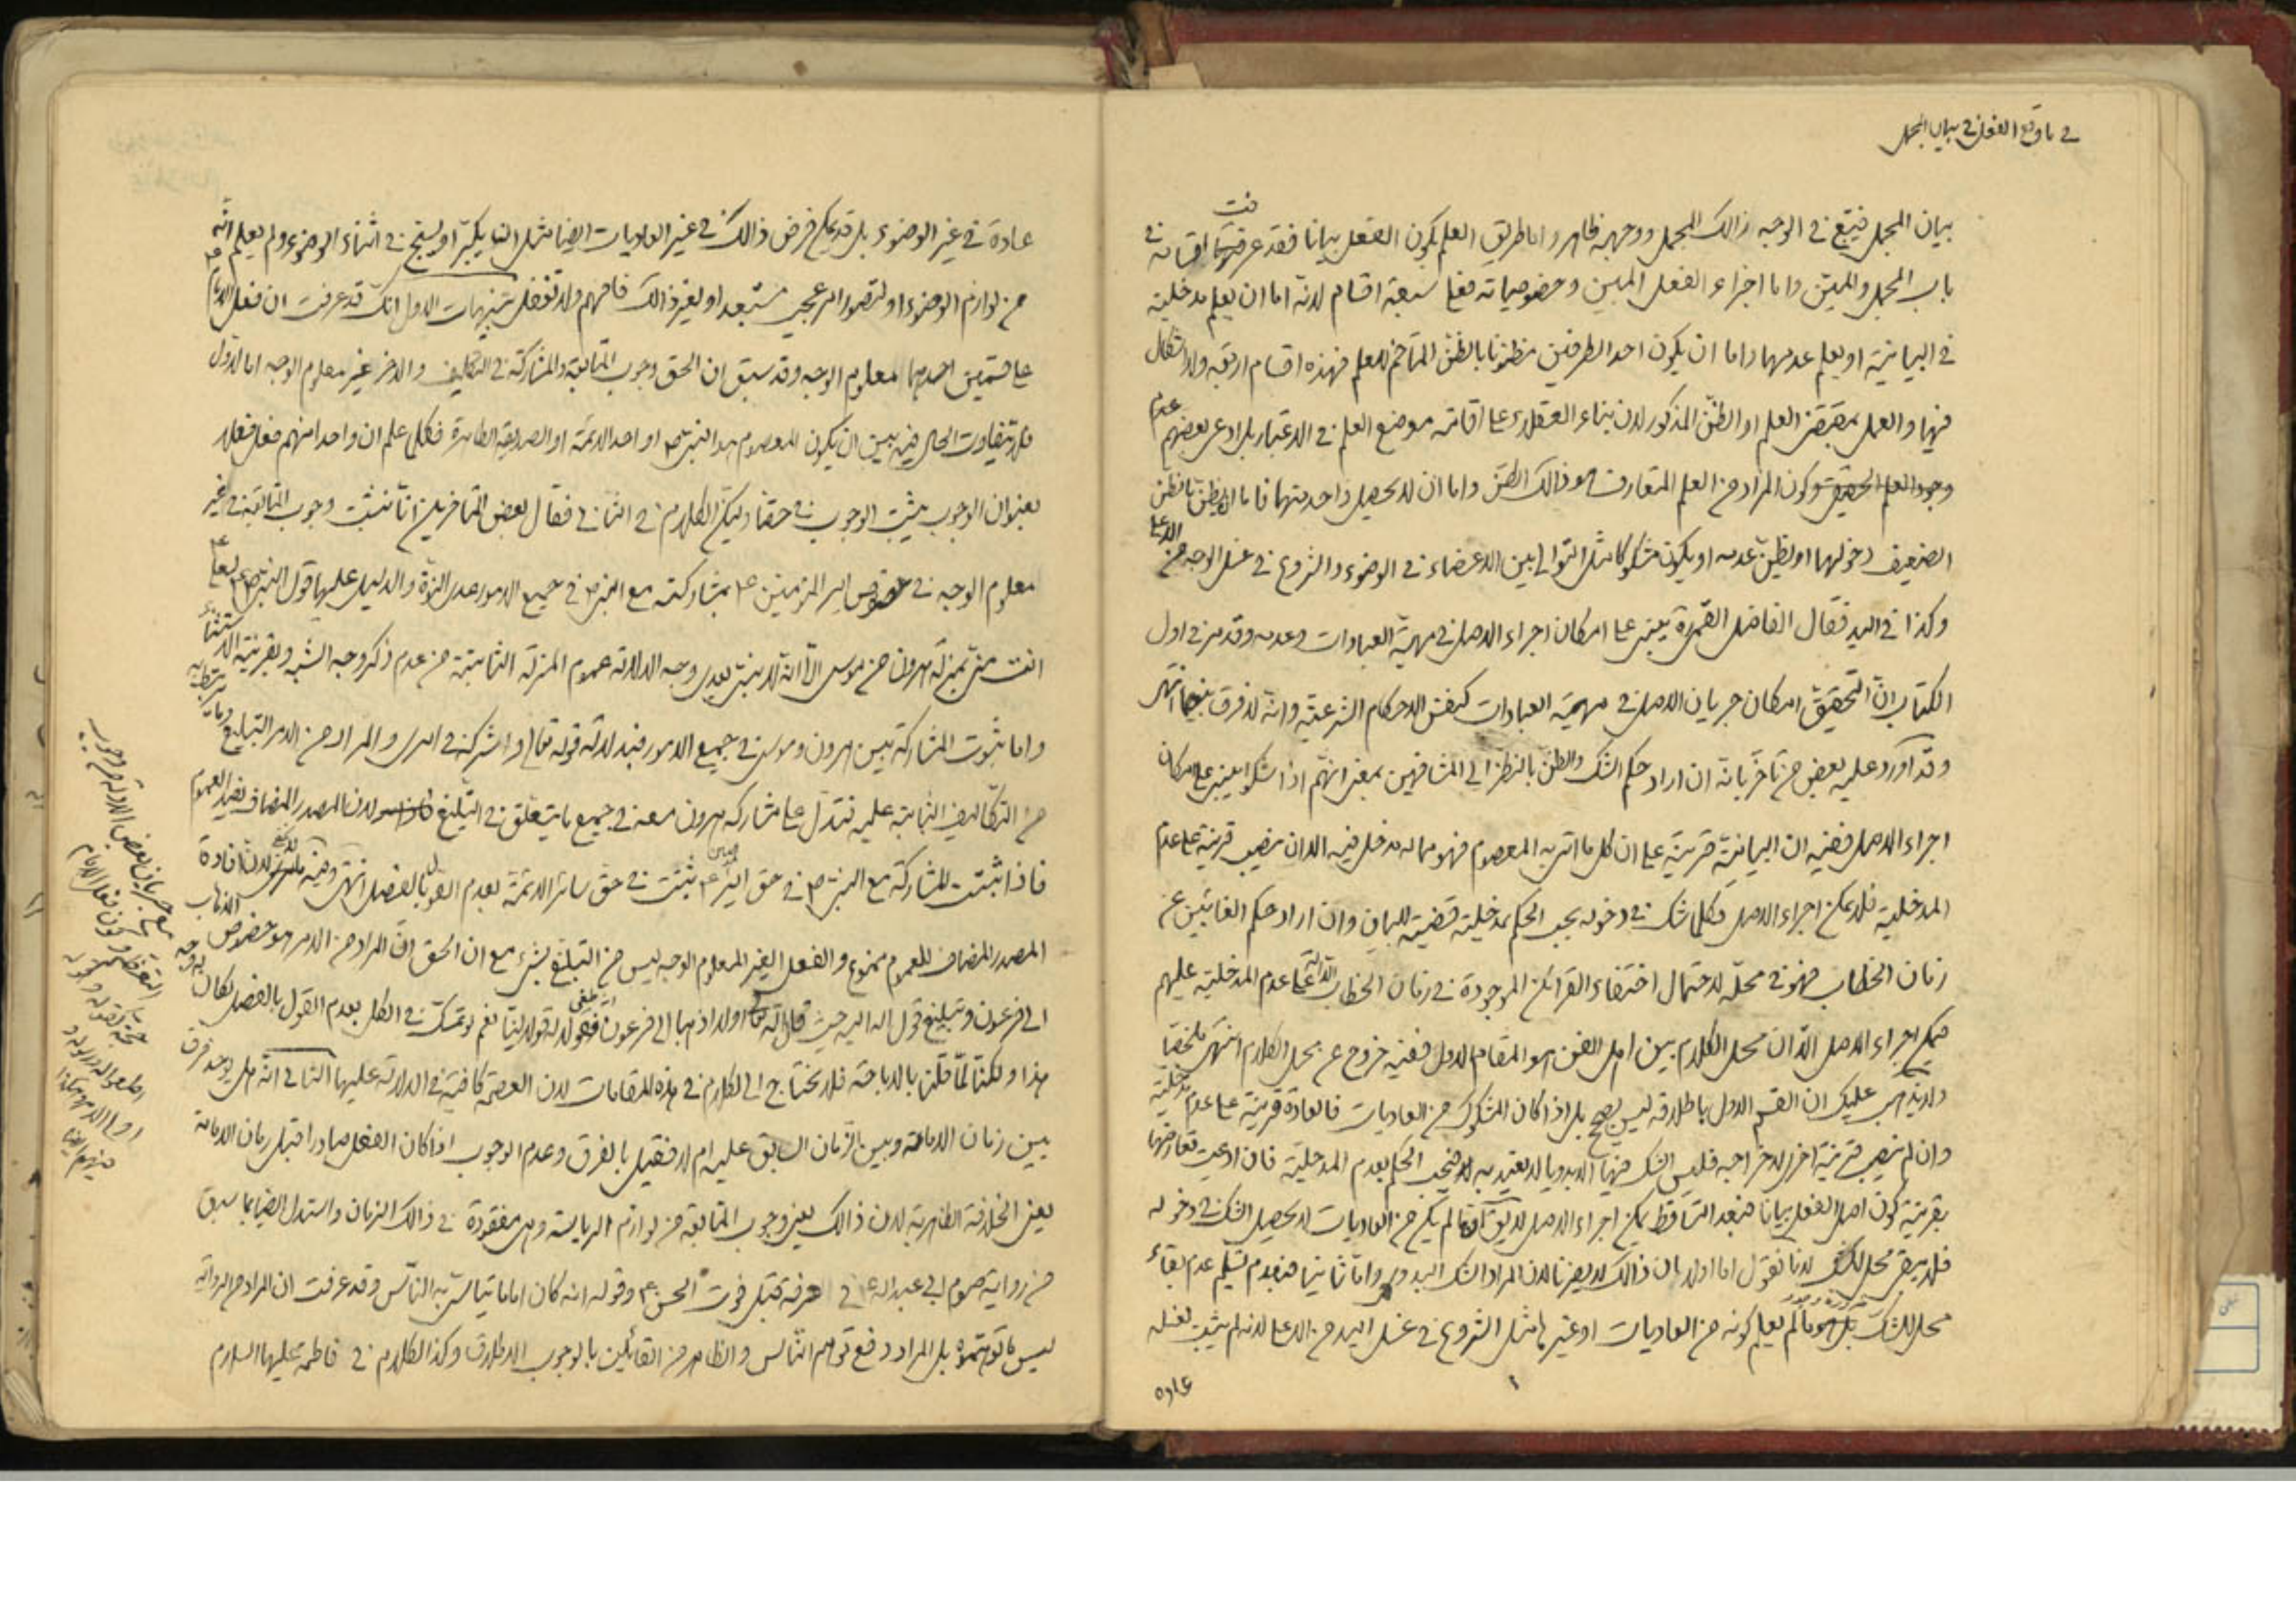 في ما وقع الفعل في بيان المجمل
بيان المجمل فيتبع في الوجه ذالك المجمل ووجهه ظاهر واما طريق العلم بكون الفعل بيانا فقد عرفت اقسامه في
باب المجمل والمبين واما اجزاء الفعل المبين وخصوصياته فعلى سبعة اقسام لانه اما ان يعلم مدخليته
في البيانية او يعلم عدمها واما ان يكون احد الطرفين مظنونا بالظن المتاخم للعلم فهذه اقسام اربعة ولا اشكال
فيها والعمل بمقتضى العلم او الظن المذكور لان بناء العقلاء على اقامته موضع العلم في الاعتبار بل ادعى بعضهم عدم
وجود العلم الحقيقي وكون المراد من العلم المتعارف هو ذالك الظن واما ان لا يحصل واحد منهما فاما ان يظن بالظن
الضعيف دخولها او يظن عدمه او يكون مشكوكا مثل التوالي بين الاعضاء في الوضوء والشروع في غسل الوجه من الاعلى
وكذا في اليد فقال الفاضل القمي ره يبنى على امكان اجراء الاصل في مهية العبادات وعدمه وقد مر في اول
الكتاب ان التحقيق امكان جريان الاصل في مهية العبادات كنفس الاحكام الشرعية وانه لا فرق بينهما انتهى
وقد اورد عليه بعض من تاخر بانه ان اراد حكم الشك والظن بالنظر الى المشافهين بمعنى انهم اذا شكوا يبنى على امكان
اجراء الاصل ففيه ان البيانية قرينة على ان كل ما اتى به المعصوم فهو مما له مدخل فيه الا ان ينصب قرينة على عدم
المدخلية فلا يمكن اجراء الاصل فكلما شك في دخوله يجب الحكم بمدخليته قضية للبيان وان اراد حكم الغائبين عن
زمان الخطاب فهو في محله لاحتمال اختفاء القرائن الموجودة في زمان الخطاب الدالة على عدم المدخلية عليهم
فيمكن اجراء الاصل الا ان محل الكلام بين اهل الفن هو المقام الاول ففيه خروج عن محل الكلام انتهى ملخصا
ولا يذهب عليك ان القسم الاول باطلاقه ليس بصحيح بل اذا كان المشكوك من العاديات فالعادة قرينة على عدم مدخليته
وان لم ينصب قرينة اخرى لاخراجه فليس الشك فيها الا بدويا لا يعتد به فيجب الحكم بعدم المدخلية فان ادعيت تعارضها
بقرينة كون اصل الفعل بيانا فبعد التساقط يمكن اجراء الاصل لا يق ما لم يكن من العاديات لا يحصل الشك في دخوله
فلا يبقى محل للشك لانا نقول اما اولا بان ذالك لا يضرنا لان المراد الشك البدوي واما ثانيا فبعدم تسليم عدم بقاء
محل للشك ما لم يعلم كونه من العاديات او غيرها مثل الشروع في غسل اليد من الاعلى لانه لم يثبت لغسله
عاده
عادة في غير الوضوء بل قد يمكن فرض ذالك في غير العاديات ايضا مثل ان يكبر او يسبح في اثناء الوضوء ولم يعلم انه
من لوازم الوضوء او لتصور امر عجيب مستبعد او لغير ذالك فافهم ولا تغفل تنبيهات الاول انك قد عرفت ان فعل الامام ع
على قسمين احدهما معلوم الوجه وقد سبق ان الحق وجوب المتابعة والمشاركة في التكاليف والاخر غير معلوم الوجه اما الاول
فلا يتفاوت الحال فيه بين ان يكون المعصوم هو النبي ص او احد الائمة او الصديقة الطاهرة فكلما علم ان واحدا منهم فعل فعلا
بعنوان الوجوب يثبت الوجوب في حقنا وليكن الكلام في الثاني فقال بعض المتاخرين انا نثبت وجوب المتابعة في غير
معلوم الوجه في خصوص امير المؤمنين ع بمشاركته مع النبي ص في جميع الامور عدى النبوة والدليل عليها قول النبي ص لعلي ع
انت مني بمنزلة هرون من موسى الا انه لا نبي بعدي وجه الدلالة عموم المنزلة الثابتة من عدم ذكر وجه الشبه وبقرينة الاستثناء
واما ثبوت المشاركة بين هرون وموسى في جميع الامور فبدلالة قوله تعالى واشركه في امري والمراد من الامر التبليغ
من التكاليف الثابتة عليه فتدل على مشاركة هرون معه في جميع ما يتعلق في التبليغ لان المصدر المضاف يفيد العموم
فاذا ثبتت المشاركة مع النبي ص في حق امير المؤمنين ع ثبتت في حق سائر الائمة بعدم القول بالفصل انتهى وفيه لان افادة
المصدر المضاف للعموم ممنوع والفعل الغير المعلوم الوجه ليس من التبليغ بشيء مع ان الحق ان المراد من الامر هو خصوص الذهاب
الى فرعون وتبليغ قول الله اليه حيث قال الله اولا اذهبا الى فرعون انه طغى فقولا له قولا لينا نعم لو تمسك في الكل بعدم القول بالفصل لكان له وجه
هذا ولكنا لما قلنا بالاباحة فلا نحتاج الى الكلام في هذه المقامات لان العصمة كافية في الدلالة عليها الثاني انه هل يوجد فرق
بين زمان الامامة وبين الزمان السابق عليه ام لا فقيل بالفرق وعدم الوجوب اذا كان الفعل صادرا قبل زمان الامامة
يعني الخلافة الظاهرية لان ذالك يعني وجوب المتابعة من لوازم الرياسة وهي مفقودة في ذالك الزمان واستدل ايضا بما سبق
من رواية صوم ابي عبد الله ع في عرفة قبل فوت الحسن ع وقوله انه كان اماما يتاسى به الناس وقد عرفت ان المراد من الرواية
ليس ما توهموه بل المراد دفع توهم الناس والظاهر من القائلين بالوجوب الاطلاق وكذا الكلام في فاطمة عليها السلام